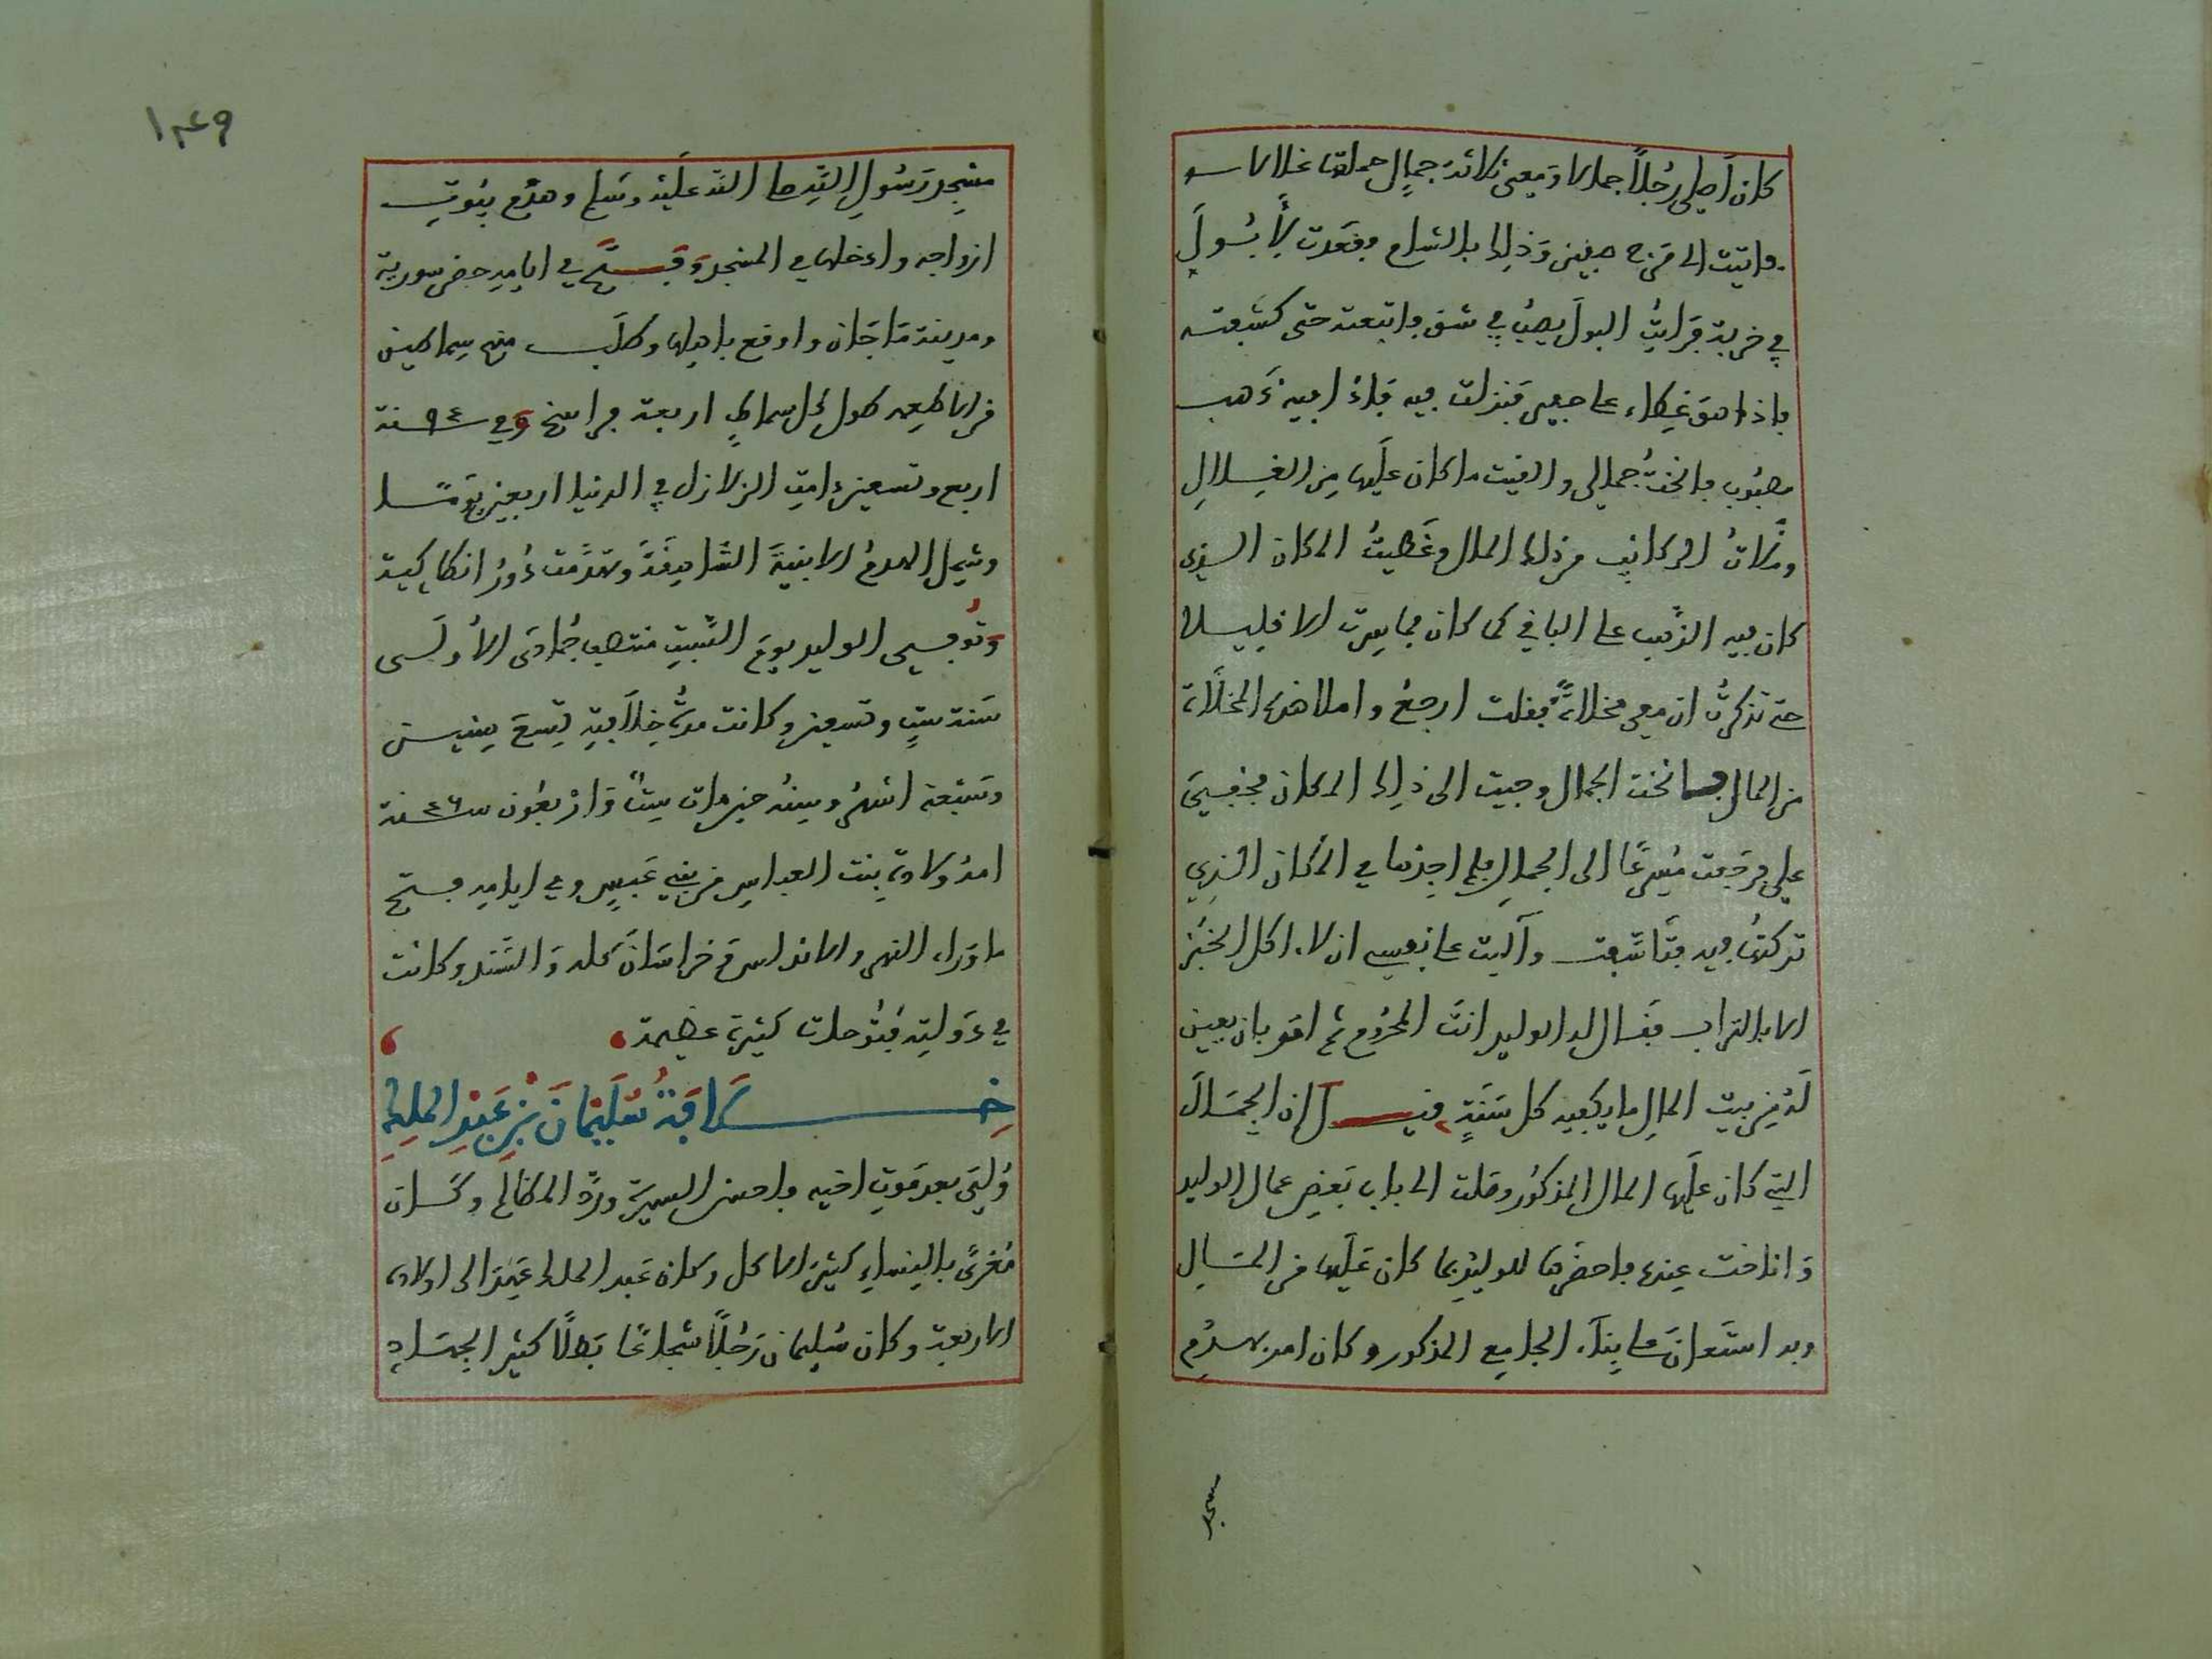 كان اصلى رجلاً جمالا ومعى ثلاثة جمال حملتها غلالا
فاتيت الى مرج صفين وذلك بالشام فقعدت لأبول
في خربة فرايتُ البول يصبُ في شق فاتبعته حتى كشفته
فاذا هو غطاء على حفير فنزلت فيه فاذا فيه ذهب
مصبوب فانختُ جمالي والقيت ما كان عليها من الغلال
وملأتُ الركايب من ذلك المال وغطيتُ المكان الذى
كان فيه الذهب على الباقي كما كان فما سرت الا قليلا
حتى تذكرتُ ان معى مخلاةً فقلت ارجع واملا هذه المخلاة
من المال فانخت الجمال وجيت الى ذلك المكان فخفي
علي فرجعت مسرعًا الى الجمال فلم اجدها في المكان الذي
تركتها فيه فتأسّفت وآليت على نفسي ان لا اكل الخبز
الا بالتراب فقال له الوليد انت المحروم ثم امر بان يعين
له من بيت المال ما يكفيه كل سنةٍ قيل ان الجمال
التي كان عليها المال المذكور وصلت الى باب بعض عمال الوليد
واناخت عنده فاحضرها للوليد بما كان عليها من المال
وبه استعان على بناء الجامع المذكور وكان امر بهدم
مسجد
١٤٩
مسجد رسول الله صلى الله عليه وسلم وهدم بيوت
ازواجه وادخلها في المسجد وفتح في ايامه حصن سورية
ومدينة ماجان واوقع باهلها وطلب منهم سماطين
من الاطعمه طول كل سماط اربعة فراسخ وفي ٩٤ سنة
اربع وتسعين دامت الزلازل في الدنيا اربعين يومًا
وشمل الهدم الابنية الشاهقة وتهدمت دور انطاكية
وتُوفي الوليد يوم السبت منتصف جمادى الأولى
سنة ستٍ وتسعين وكانت مدة خلافته تسع سنين
وسبعة اشهر وسنه حين مات ستٌ واربعون ٤٦ سنة
امه ولادة بنت العباس من بني عبس وفي ايامه فتح
ماوراء النهر والاندلس وخراسان كله والسند وكانت
في دولته فتوحات كثيرة عظيمة
خلافة سليمان بن عبد الملك
وُلي بعد موت اخيه فاحسن السيرة وردّ المظالم وكان
مغرىً بالنساء كثير الاكل وكان عبد الملك عهد الى اولاده
الاربعة وكان سليمان رجلاً شجاعًا بطلاً كثير الجهاد